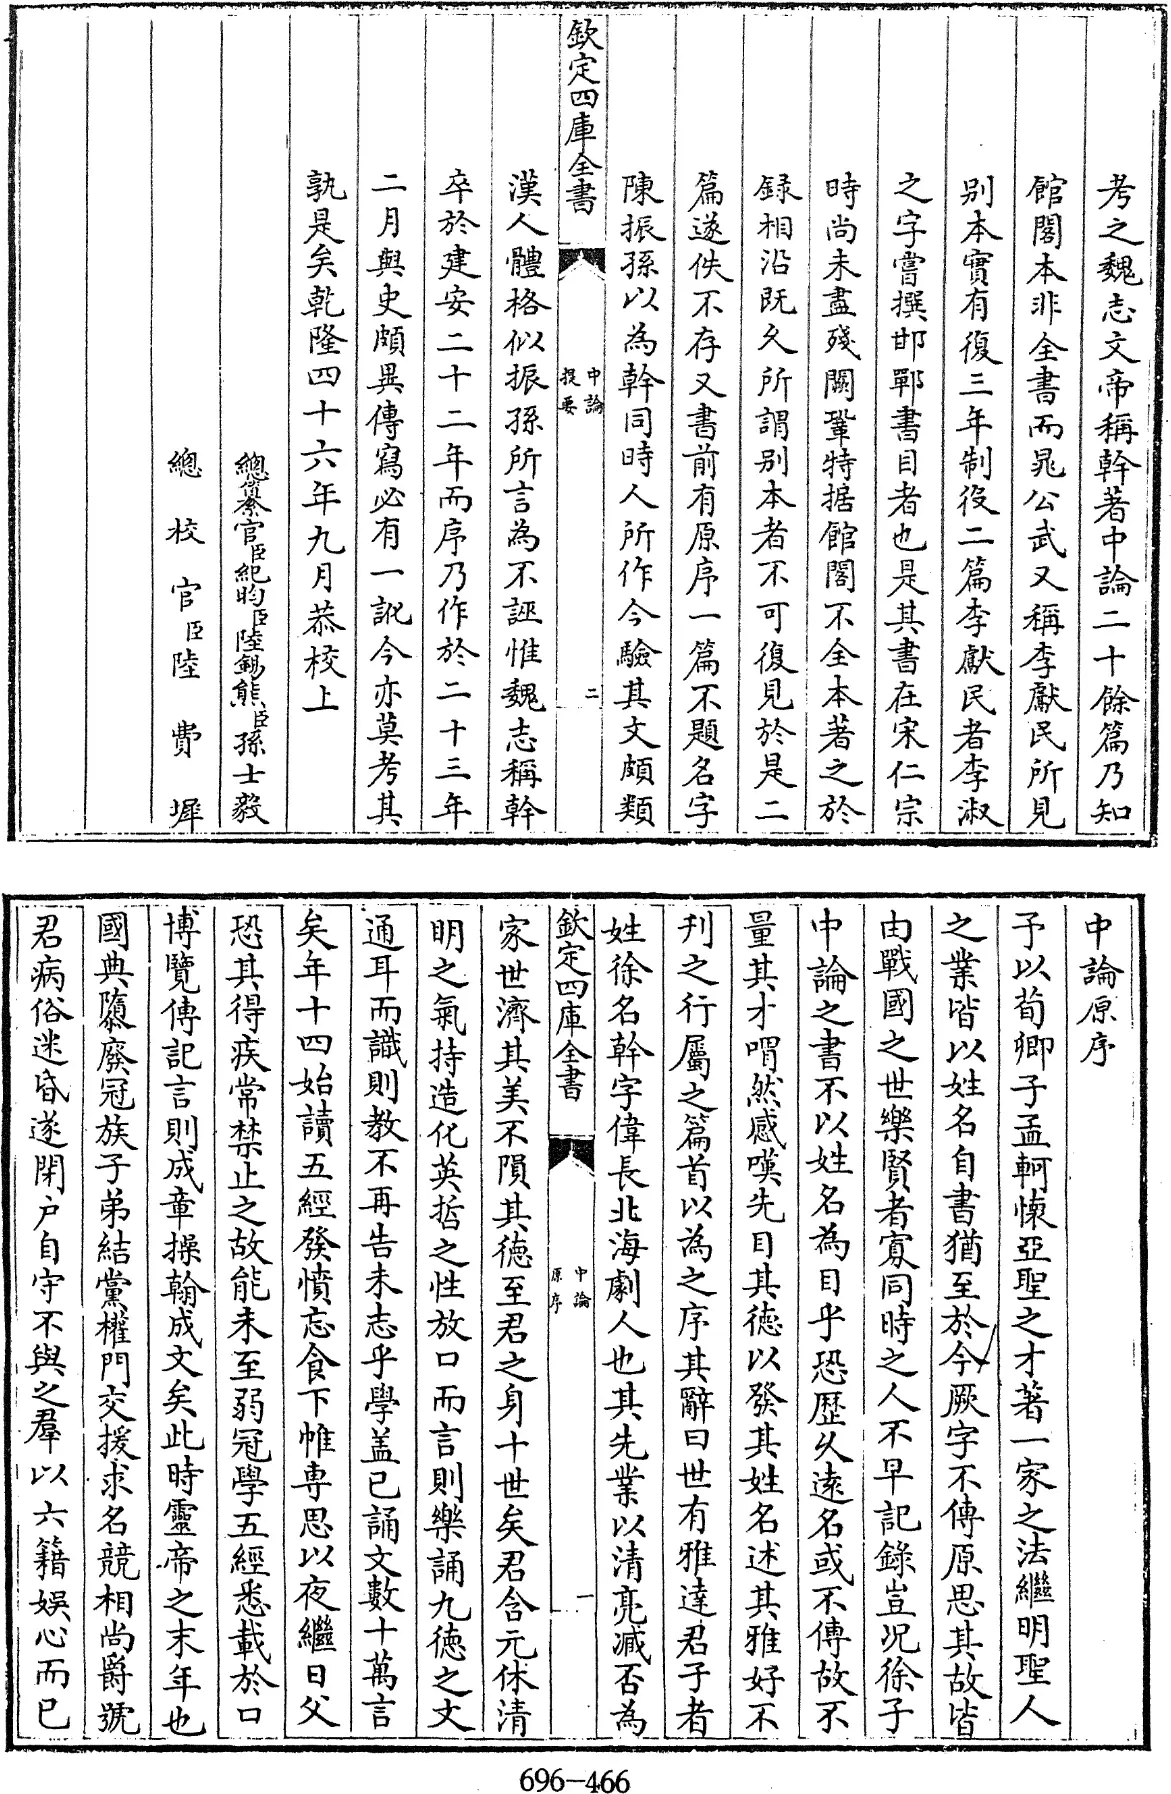 考之魏志文帝稱幹著中論二十餘篇乃知
館閣本非全書而晁公武又稱李獻民所見
别本實有復三年制役二篇李獻民者李淑
之字嘗撰邯鄲書目者也是其書在宋仁宗
時尚未盡殘闕鞏特据館閣不全本著之於
録相沿既久所謂别本者不可復見於是二
篇遂佚不存又書前有原序一篇不題名字
陳振孫以為幹同時人所作今驗其文頗類
欽定四庫全書
中論
提要
二
漢人體格似振孫所言為不誣惟魏志稱幹
卒於建安二十二年而序乃作於二十三年
二月與史頗異傳寫必有一訛今亦莫考其
孰是矣乾隆四十六年九月恭校上
總纂官臣紀昀臣陸錫熊臣孫士毅
總校官臣陸費墀
中論原序
予以荀卿子孟軻懷亞聖之才著一家之法繼明聖人
之業皆以姓名自書猶至於今厥字不傳原思其故皆
由戰國之世樂賢者寡同時之人不早記錄豈况徐子
中論之書不以姓名為目乎恐歷久遠名或不傳故不
量其才喟然感嘆先目其德以發其姓名述其雅好不
刋之行屬之篇首以為之序其辭曰世有雅達君子者
姓徐名幹字偉長北海劇人也其先業以清亮減否為
欽定四庫全書
中論
原序
一
家世濟其美不隕其德至君之身十世矣君含元休清
明之氣持造化英哲之性放口而言則樂誦九德之文
通耳而識則教不再告未志乎學盖已誦文數十萬言
矣年十四始讀五經發憤忘食下帷専思以夜繼日父
恐其得疾常禁止之故能未至弱冠學五經悉載於口
博覽傳記言則成章操翰成文矣此時靈帝之末年也
國典隳廢冠族子弟結黨權門交援求名競相尚爵號
君病俗迷昏遂閉户自守不與之羣以六籍娛心而已
696-466